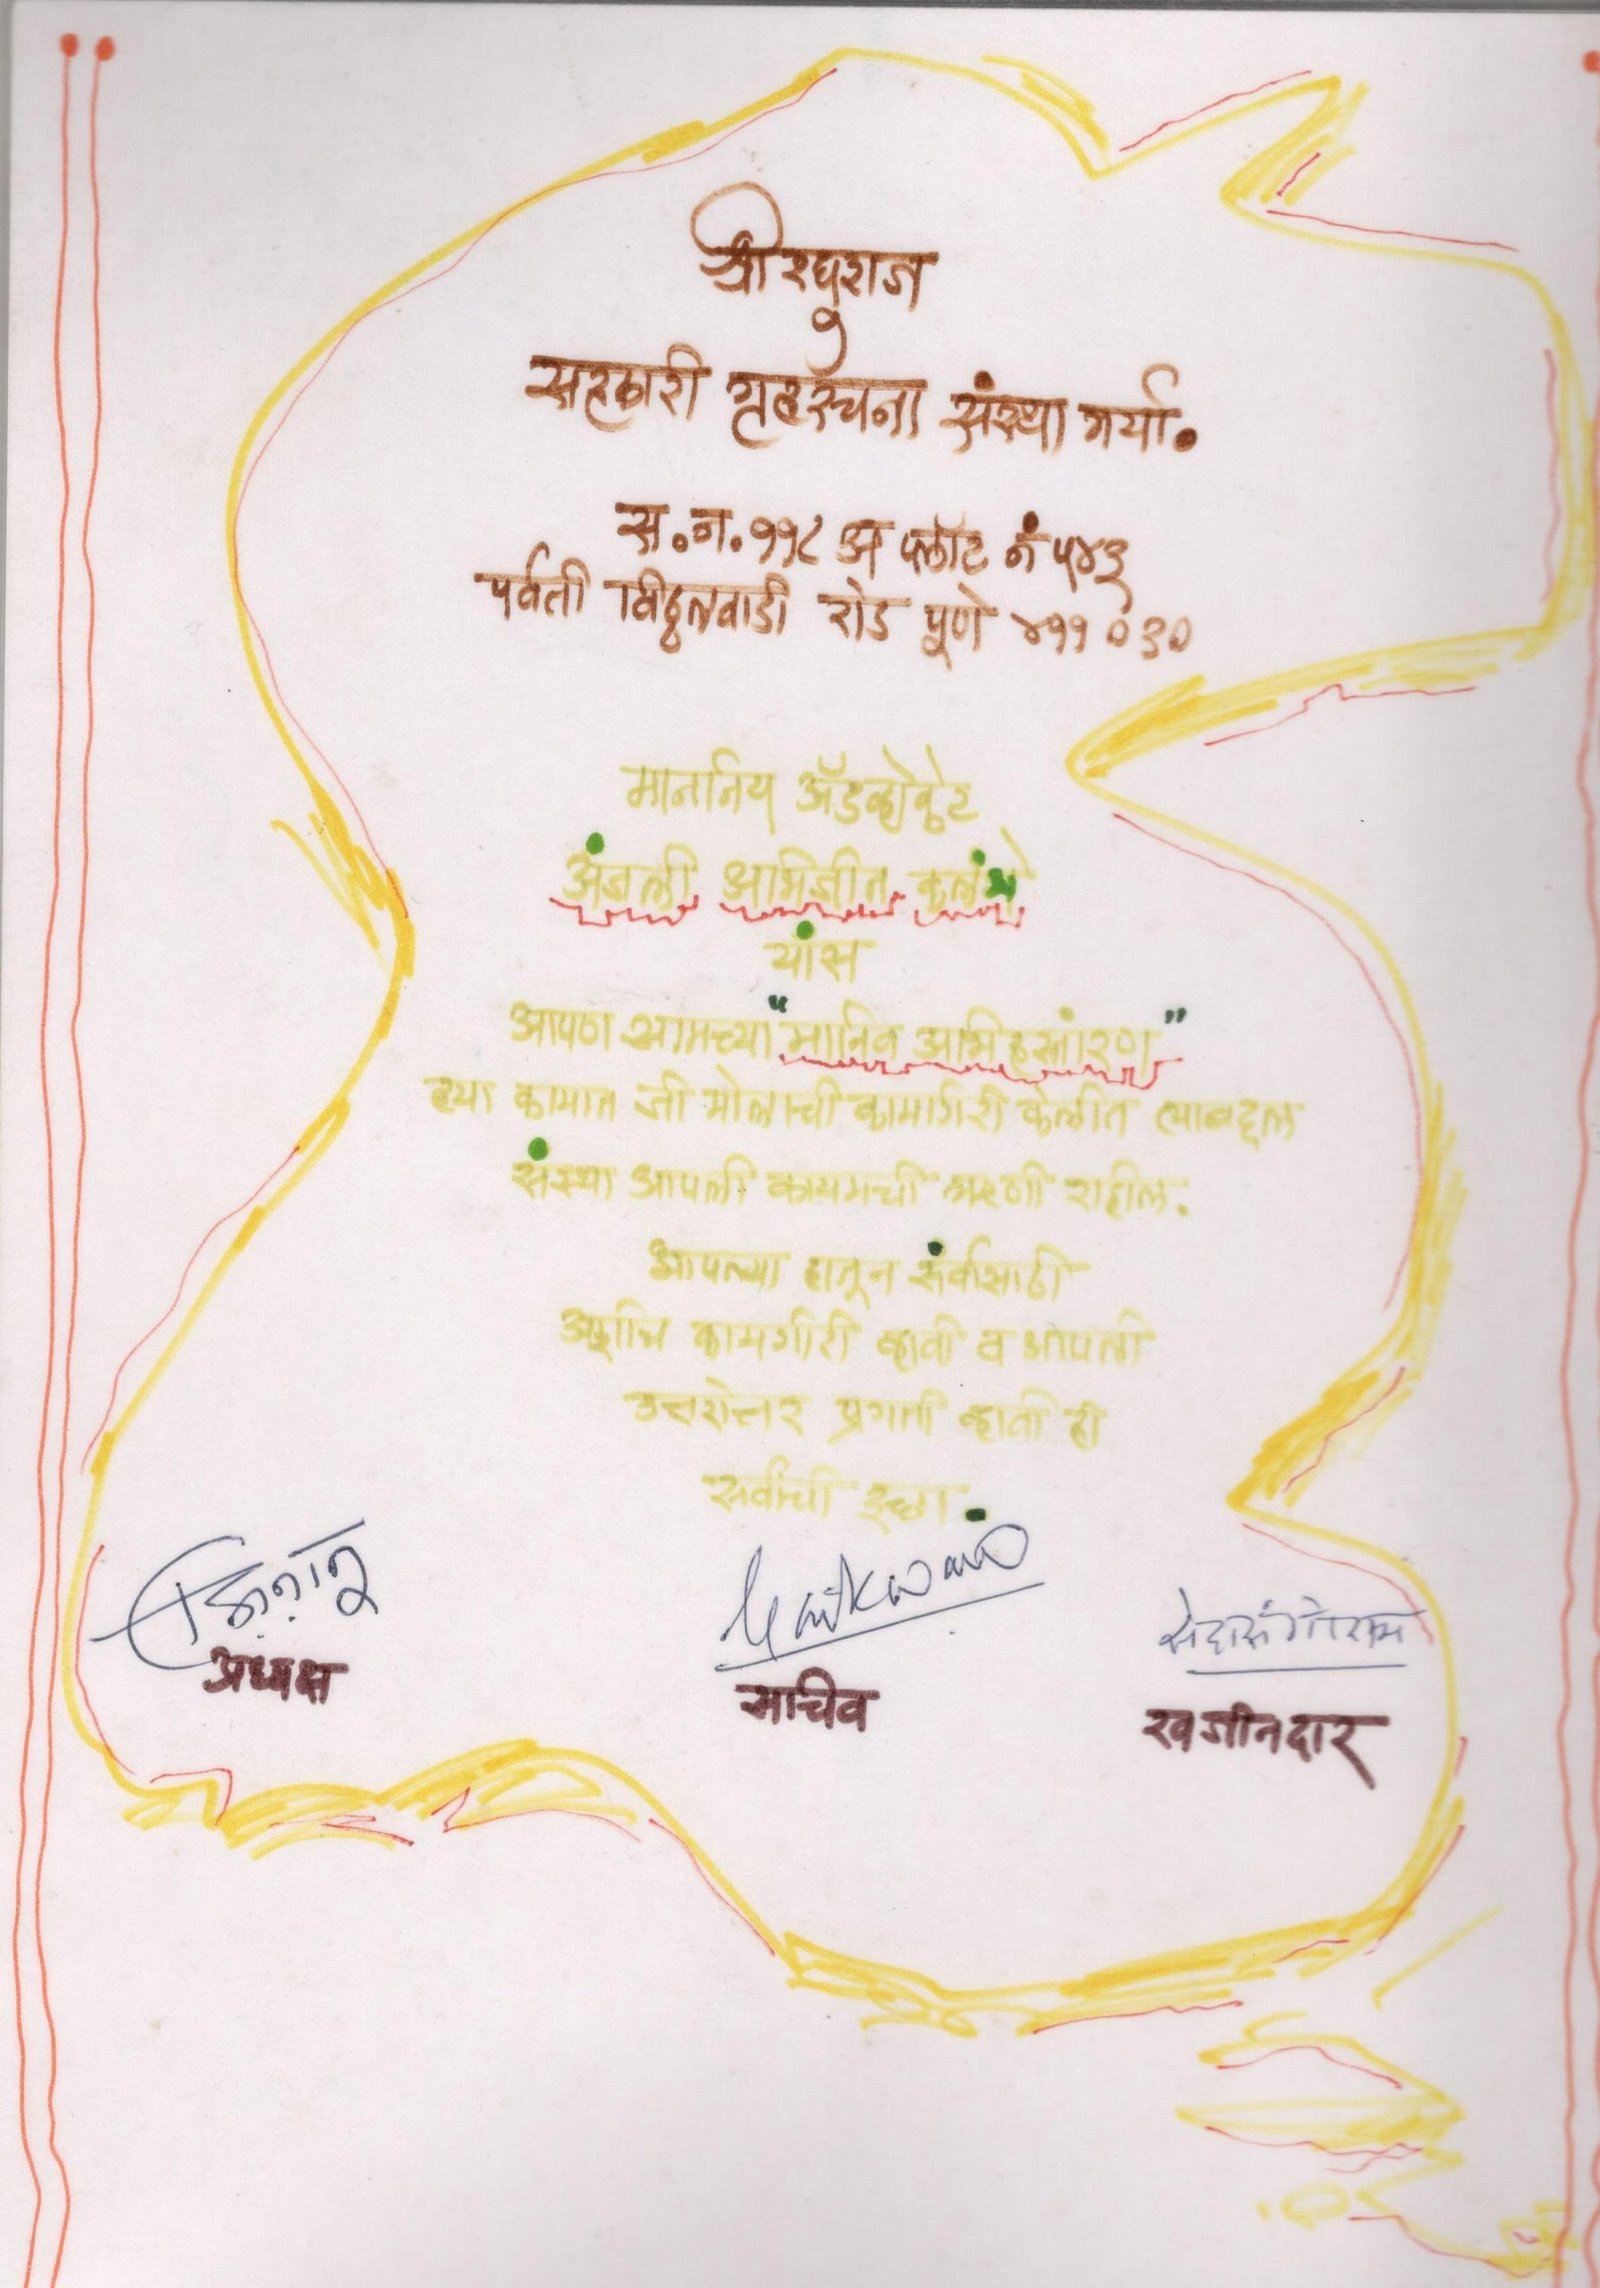 श्री रघुराज
सहकारी गृहरचना संस्था मर्या.
स.न.११८ अ प्लॉट नं ५४३
पर्वती विठ्ठलवाडी रोड पूणे ४११०३०
माननिय ॲडव्होकेट
अंजली अभिजीत
यांस
आपण आमच्या "मानिव अभिहस्तांरण"
ह्या कामात जी मोलाची कामागिरी केलीत त्याबद्दल
संस्था आपली कायमची ऋणी राहील.
आपल्या हातून संर्वासाठी
अशीच कामगीरी व्हावी व आपली
उत्तरोत्तर प्रगती व्हावी ही
सर्वांची इच्छा.
Gaikwad
अध्यक्ष सचिव खजीनदार